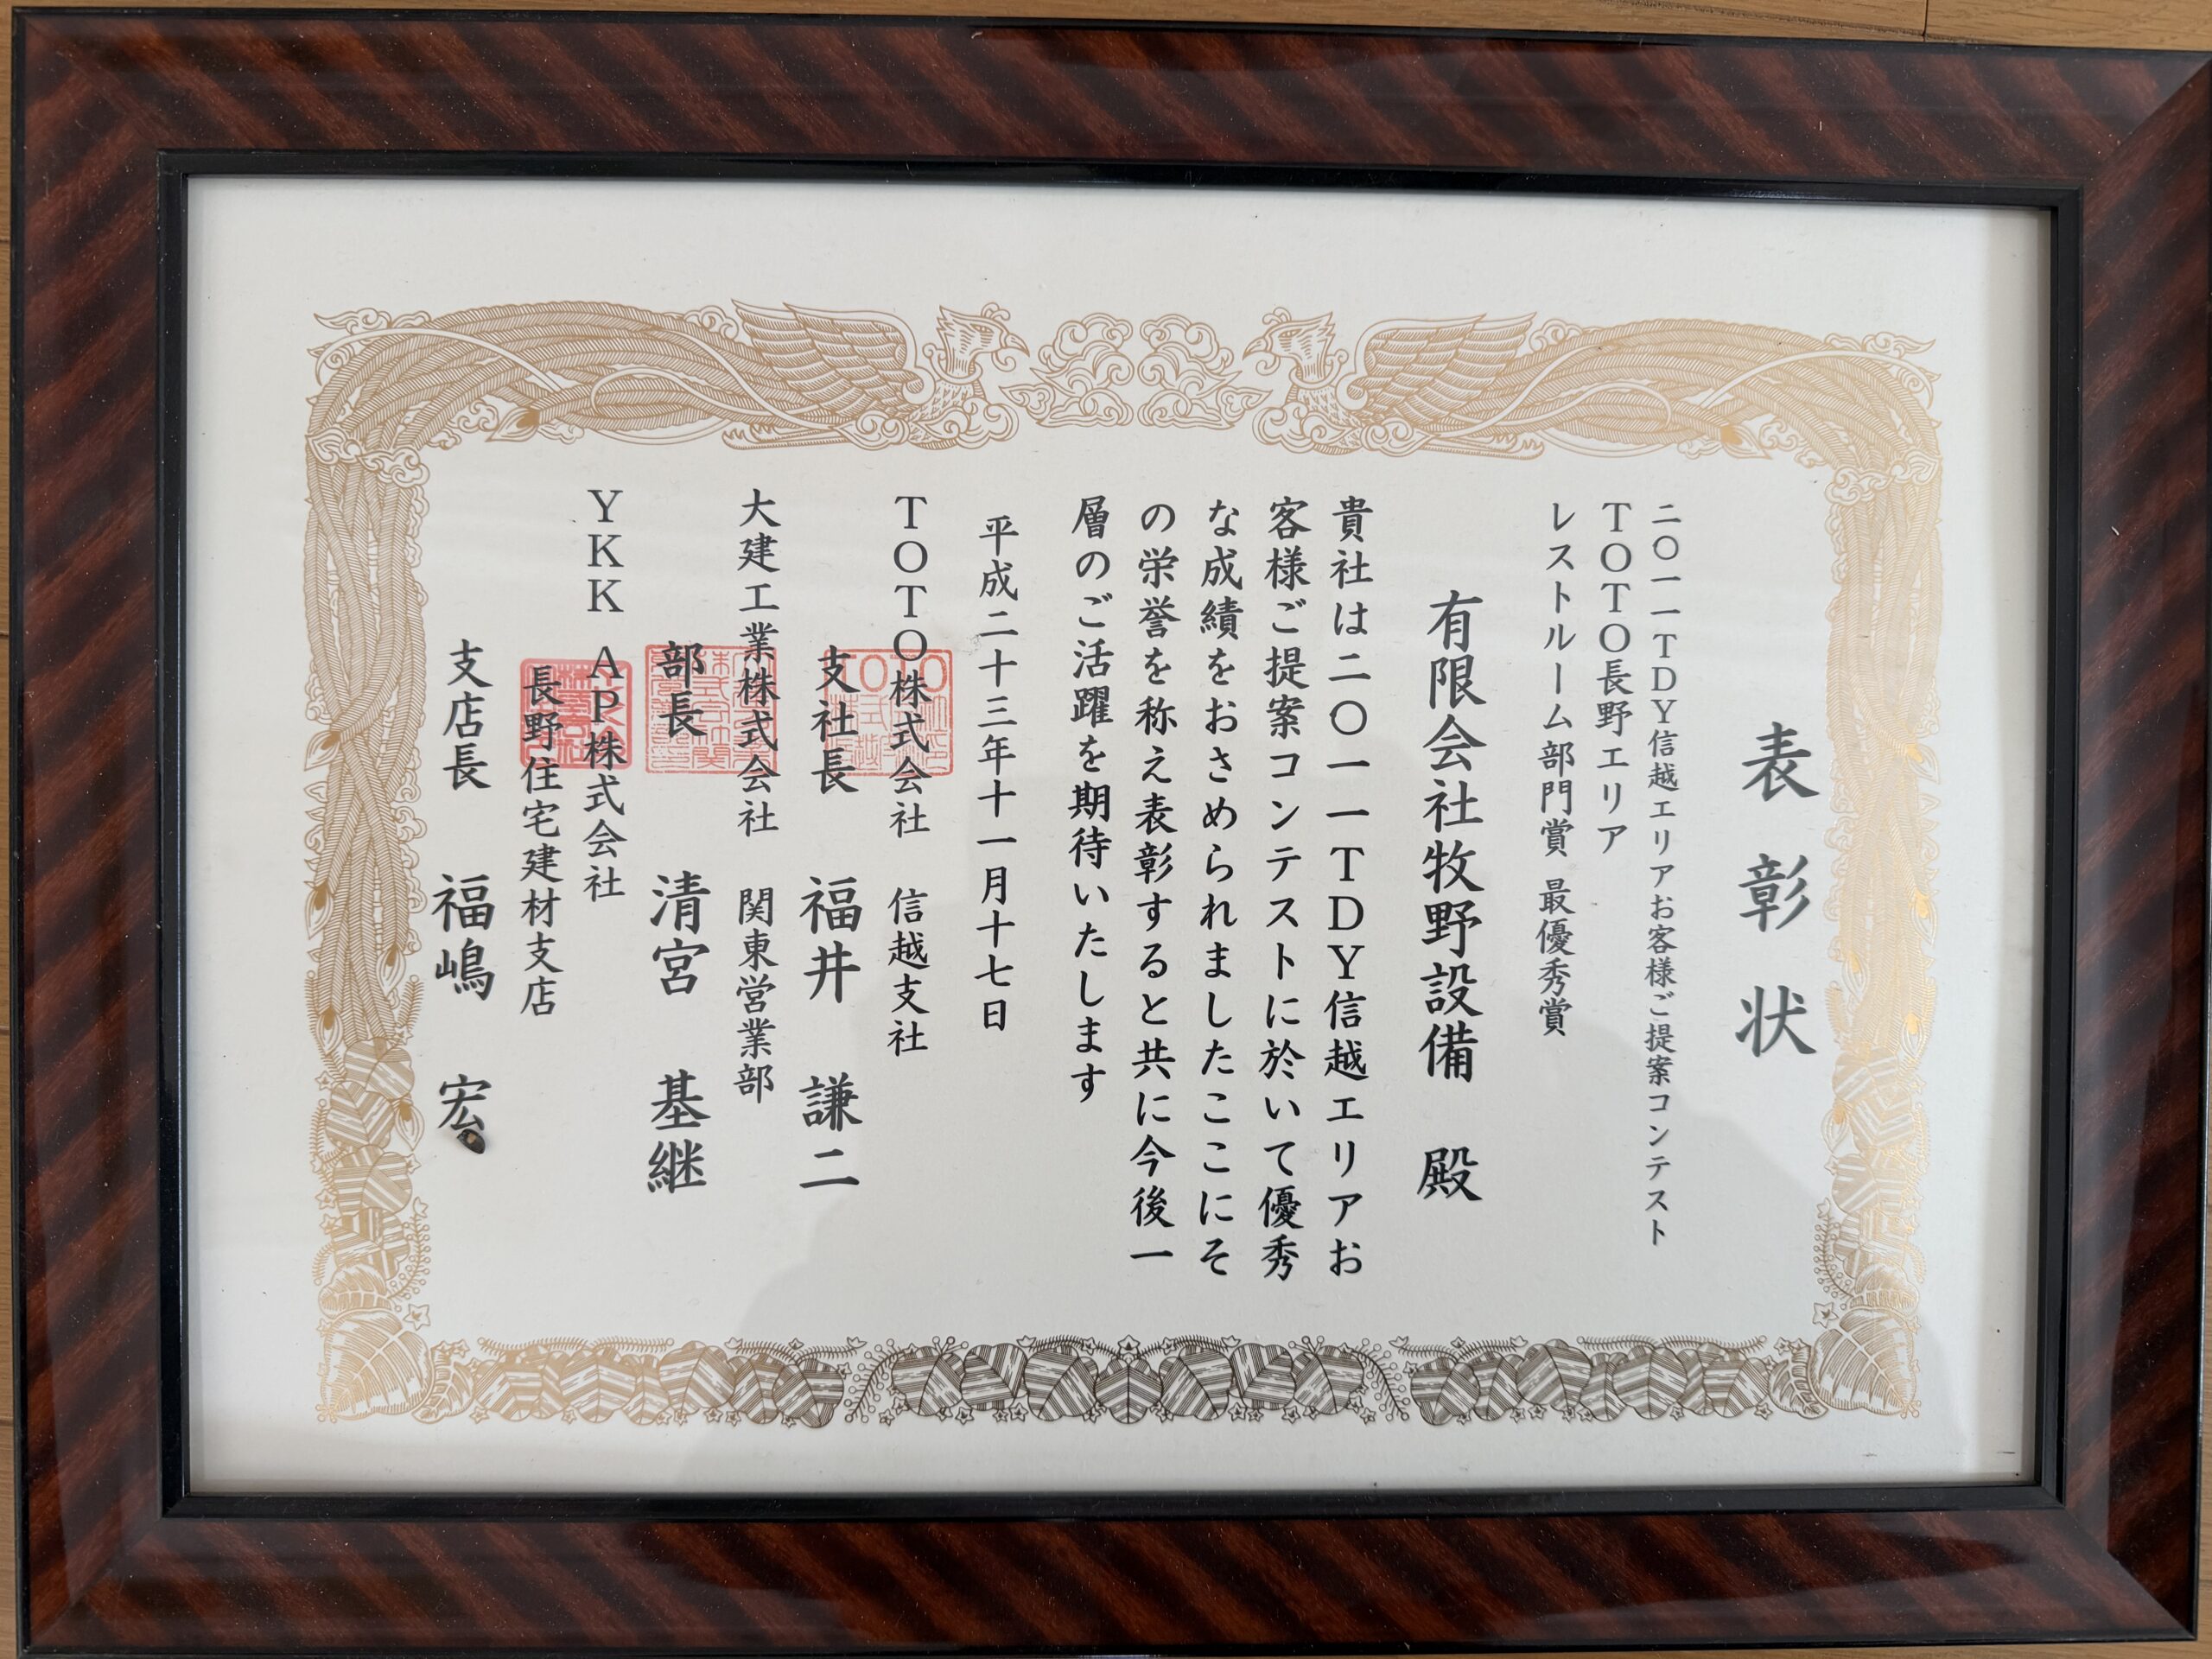 表彰状
二〇一一TDY信越エリアお客様ご提案コンテスト
TOTO長野エリア
レストルーム部門賞 最優秀賞
有限会社牧野設備 殿
貴社は二〇一一TDY信越エリアお
客様ご提案コンテストに於いて優秀
な成績をおさめられましたここにそ
の栄誉を称え表彰すると共に今後一
層のご活躍を期待いたします
平成二十三年十一月十七日
TOTO株式会社 信越支社
支社長 福井 謙二
大建工業株式会社 関東営業部
部長 清宮 基継
YKK AP株式会社
長野住宅建材支店
支店長 福嶋 宏